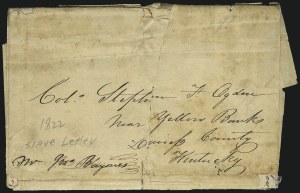 Col. Stephen F Ogden
Near Yellow Banks
Daviess County
Kentucky
1822
slave Letter
Mr